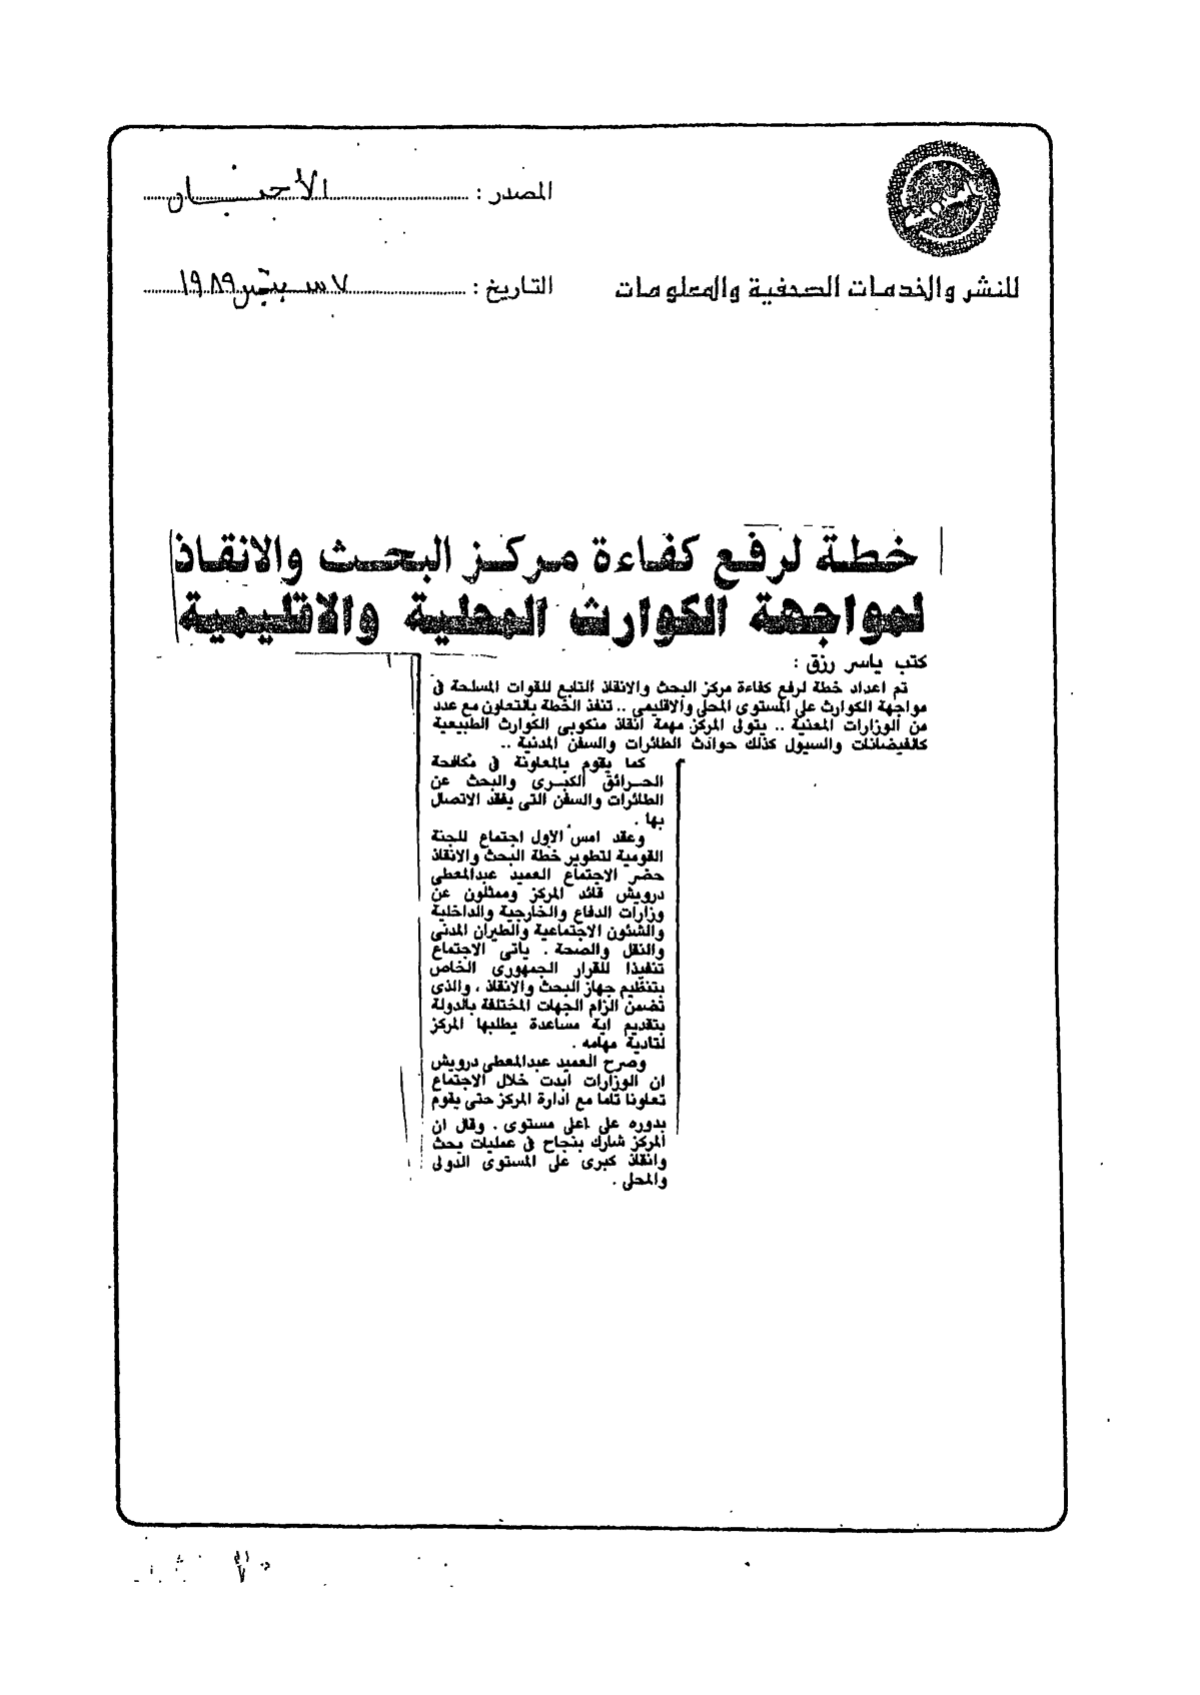 المصدر : الأخبار
للنشر والخدمات الصحفية والمعلومات
التاريخ : ٧ سبتمبر ١٩٨٩
خطة لرفع كفاءة مركز البحث والانقاذ
لمواجهة الكوارث المحلية والاقليمية
كتب ياسر رزق :
تم اعداد خطة لرفع كفاءة مركز البحث والانقاذ التابع للقوات المسلحة فى
مواجهة الكوارث على المستوى المحلى والاقليمى .. تنفذ الخطة بالتعاون مع عدد
من الوزارات المعنية .. يتولى المركز مهمة انقاذ منكوبى الكوارث الطبيعية
كالفيضانات والسيول كذلك حوادث الطائرات والسفن المدنية ..
كما يقوم بالمعاونة فى مكافحة
الحرائق الكبرى والبحث عن
الطائرات والسفن التى يفقد الاتصال
بها .
وعقد امس الأول اجتماع للجنة
القومية لتطوير خطة البحث والانقاذ
حضر الاجتماع العميد عبدالمعطى
درويش قائد المركز وممثلون عن
وزارات الدفاع والخارجية والداخلية
والشئون الاجتماعية والطيران المدنى
والنقل والصحة . ياتى الاجتماع
تنفيذا للقرار الجمهورى الخاص
بتنظيم جهاز البحث والانقاذ ، والذى
تضمن الزام الجهات المختلفة بالدولة
بتقديم اية مساعدة يطلبها المركز
لتادية مهامه .
وصرح العميد عبدالمعطى درويش
ان الوزارات ابدت خلال الاجتماع
تعاونا تاما مع ادارة المركز حتى يقوم
بدوره على اعلى مستوى . وقال ان
المركز شارك بنجاح فى عمليات بحث
وانقاذ كبرى على المستوى الدولى
والمحلى .